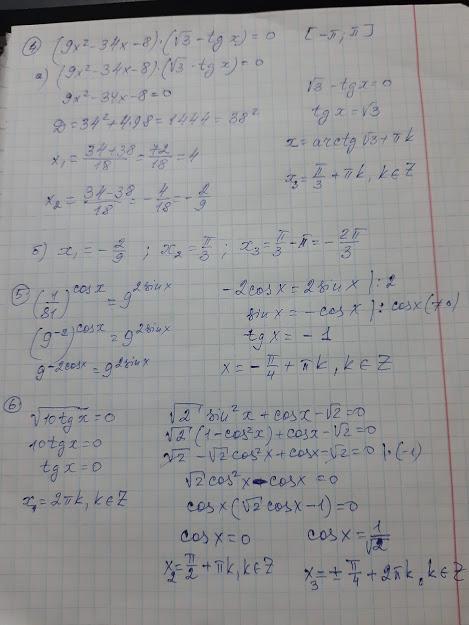 ④ (9x²-34x-8)·(√3-tgx)=0 [-π; π]
а) (9x²-34x-8)(√3-tgx)=0
9x²-34x-8=0
D=34²+4·9·8=1444=38²
x₁=(34+38)/18=72/18=4
x₂=(34-38)/18=-4/18=-2/9
√3-tgx=0
tgx=√3
x=arctg√3+πk
x₃=π/3+πk, k∈Z
б) x₁=-2/9; x₂=π/3; x₃=π/3-π=-2π/3
⑤ (1/81)^cosx=9^2sinx
(9⁻²)^cosx=9^2sinx
9^-2cosx=9^2sinx
-2cosx=2sinx |:2
sinx=-cosx |:cosx(≠0)
tgx=-1
x=-π/4+πk, k∈Z
⑥
√10tgx=0
10tgx=0
tgx=0
x₁=2πk, k∈Z
√2 sin²x+cosx-√2=0
√2(1-cos²x)+cosx-√2=0
√2-√2cos²x+cosx-√2=0 |·(-1)
√2cos²x-cosx=0
cosx(√2cosx-1)=0
cosx=0 cosx=1/√2
x₂=π/2+πk, k∈Z x₃=±π/4+2πk, k∈Z